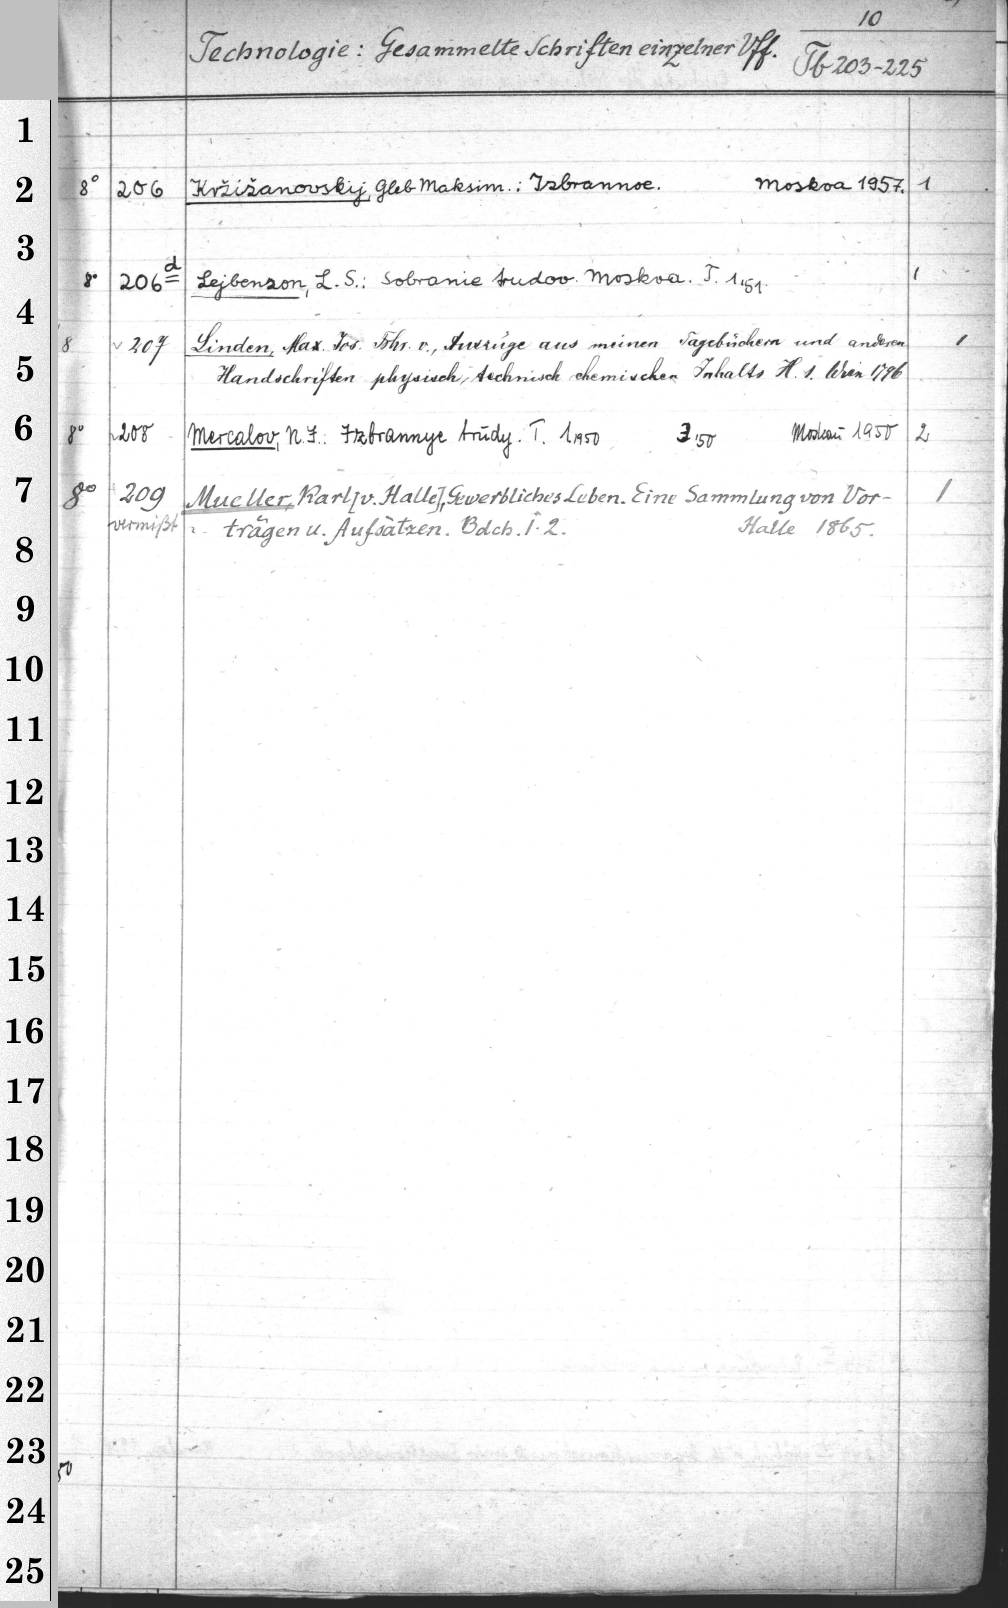 10
Technologie: Gesammelte Schriften einzelner Vff. Tb 203-225
1
2 8° 206 Kržižanovskij, Gleb Maksim.: Izbrannoe. Moskva 1957. 1
3
8° 206 d Lejbenzon, L. S.: Sobranie trudov. Moskva. T. 1,'51. 1
4
8 v 207 Linden, Max. Jos. Frhr. v., Auszüge aus meinen Tagebüchern und anderen 1
5 Handschriften physisch, technisch chemischen Inhalts H. 1. Wien 1796
6 8° 208 Mercalov, N. I.: Izbrannye trudy. T. 1,1950 3,'50 Moskau 1950 2
7 8° 209 Mueller, Karl [v. Halle], Gewerbliches Leben. Eine Sammlung von Vor- 1
vermißt trägen u. Aufsätzen. Bdch. 1. 2. Halle 1865.
8
9
10
11
12
13
14
15
16
17
18
19
20
21
22
23
50
24
25